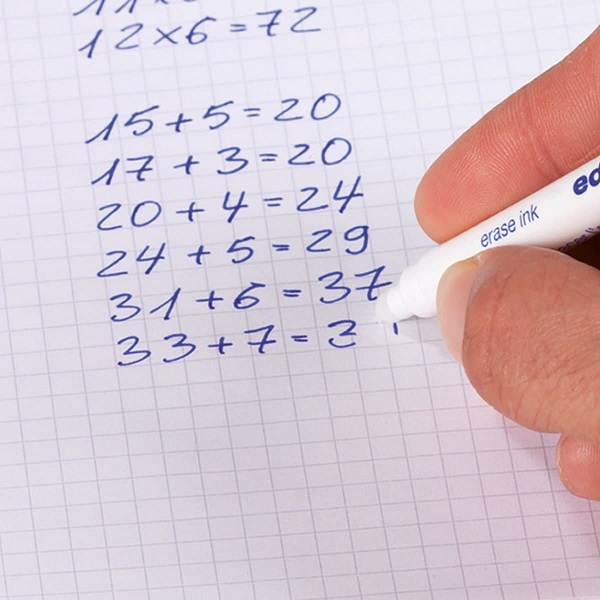 12×6=72
15+5=20
17+3=20
20+4=24
24+5=29
31+6=37
33+7=3
erase ink
ed